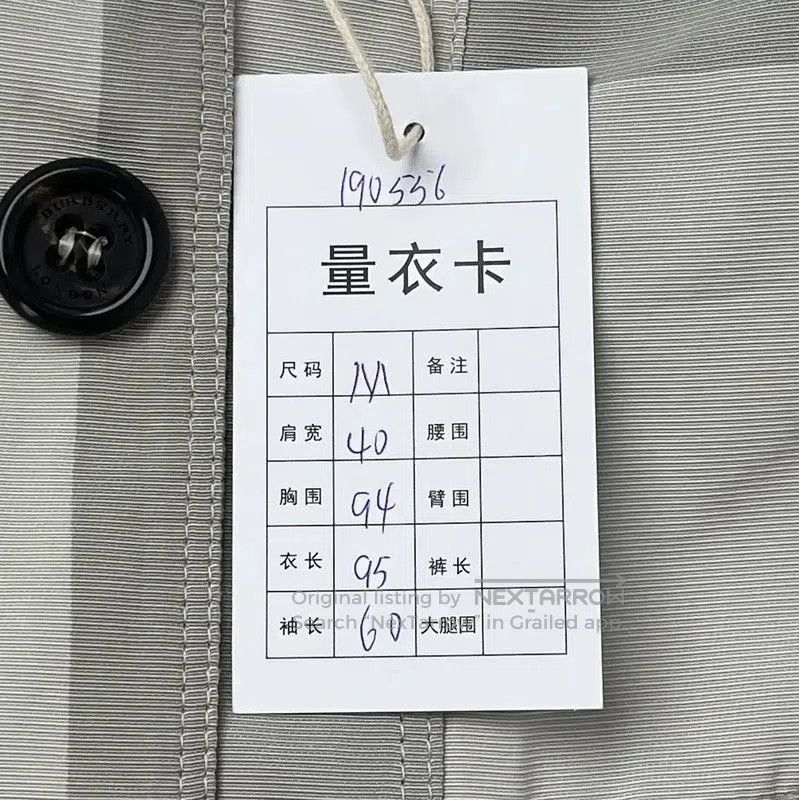 190556
量衣卡
尺码 M 备注
肩宽 40 腰围
胸围 94 臂围
衣长 95 裤长
袖长 60 大腿围
BURBERRY
LONDON
Original listing by NEXTARROW
Search "NexTarrow" in Grailed app